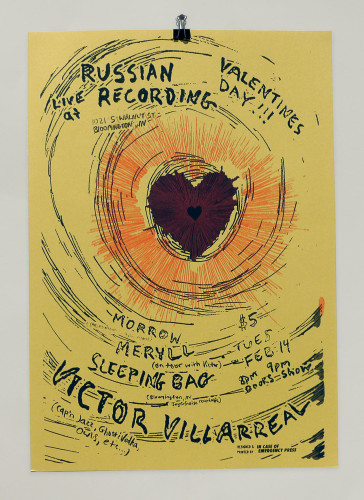 LIVE AT
RUSSIAN
RECORDING
VALENTINES
DAY!!!
1021 S. WALNUT ST.
BLOOMINGTON, IN
MORROW
MERYLL
(on tour with Victor)
SLEEPING BAG
(Bloomington, IN
VICTOR VILLARREAL
(Cap'n Jazz, Ghosts & Vodka,
Owls, etc...)
$5
TUES
FEB 14
8pm 9pm
Doors - Show
DESIGNED &
PRINTED BY
IN CASE OF
EMERGENCY PRESS